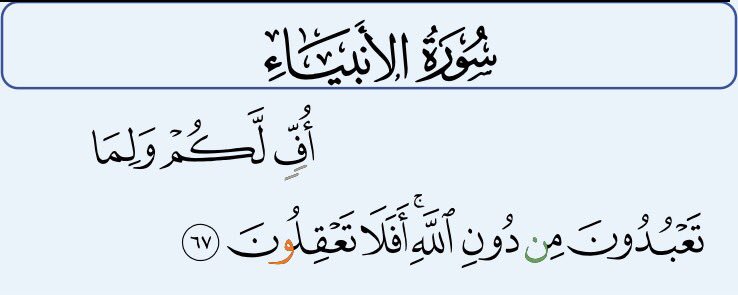 سُورَةُ الأَنبِيَاءِ
أُفٍّ لَّكُمْ وَلِمَا
تَعْبُدُونَ مِن دُونِ ٱللَّهِ ۚ أَفَلَا تَعْقِلُونَ ٦٧